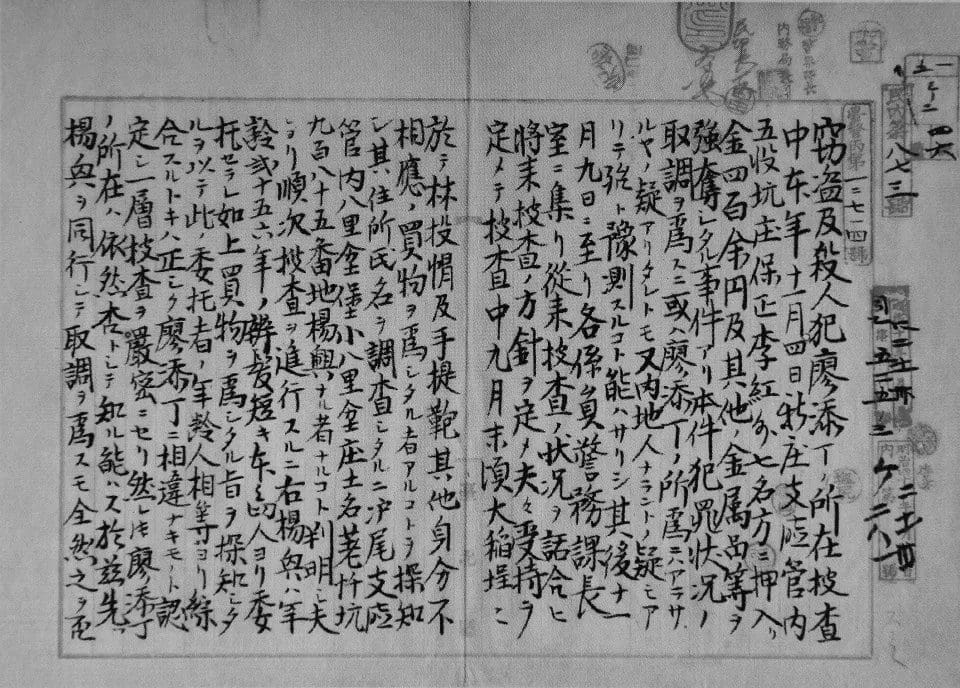 窃盗及殺人犯廖添丁ノ所在捜査
中本年十一月四日新庄支廰管内
五股坑庄保正李紅外七名方ニ押入リ
金四百余円及其他ノ金属品等ヲ
強奪シタル事件アリ本件犯罪状況ノ
取調ヲ為スニ或ハ廖添丁ノ所為ニアラサ
ルヤノ疑アリタレトモ又内地人ナラントノ疑モア
リテ強ト豫測スルコト能ハサリシ其後十一
月九日ニ至リ各係員警務課長
室ニ集リ従来捜査ノ状況ヲ話合ヒ
将来捜査ノ方針ヲ定メ夫々受持ヲ
定メテ捜査中九月末頃大稲埕ニ
於テ林投帽及手提鞄其他身分不
相應ノ買物ヲ為シタル者アルコトヲ探知
シ其住所氏名ヲ調査シタルニ滬尾支廰
管内八里坌堡小八里坌庄土名荖阡坑
九百八十五番地楊興ナル者ナルコト判明シ夫
ヨリ順次捜査ヲ進行スルニ右楊興ハ年
齢弐十五六年ノ辮髪短キ本島人ヨリ委
托セラレ如上買物ヲ為シタル旨ヲ探知シタ
ルヲ以テ此ノ委托者ノ年齢人相等ヨリ綜
合スルトキハ正シク廖添丁ニ相違ナキモノト認
定シ一層捜査ヲ厳密ニセリ然レトモ廖添丁
ノ所在ハ依然杳トシテ知ル能ハス於茲先ツ
楊興ヲ同行シテ取調ヲ為スモ全然之ヲ否
八七三